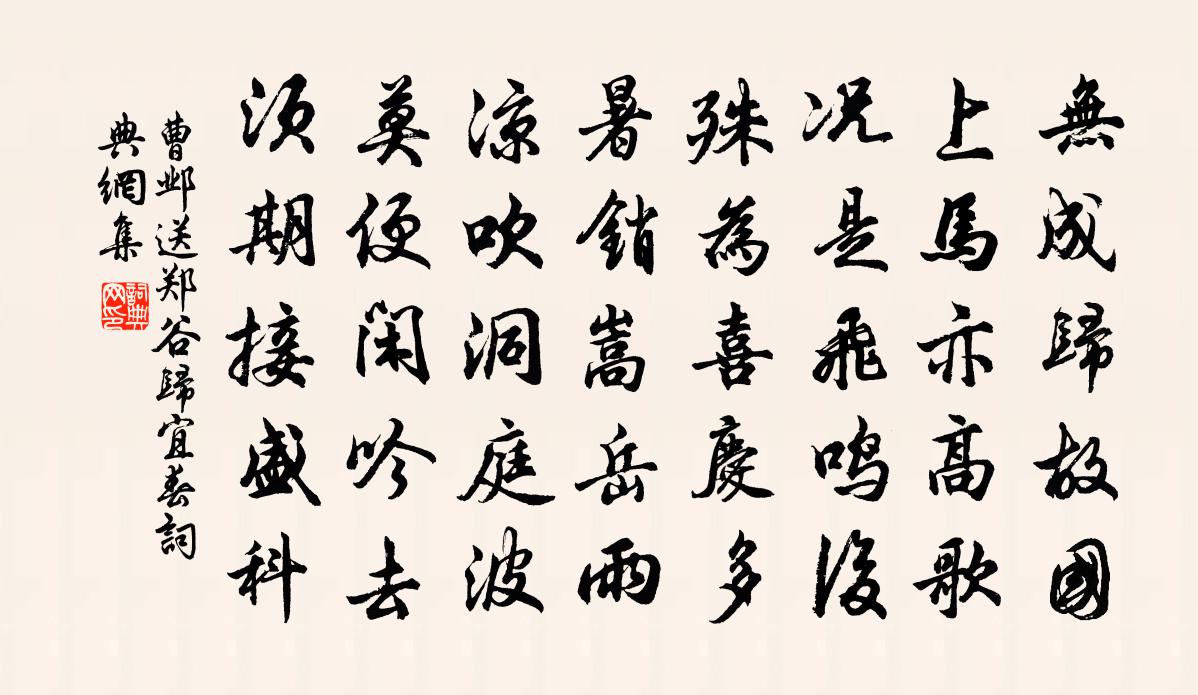 無成歸故國
上馬亦高歌
况是飛鳴後
殊為喜慶多
暑銷嵩岳雨
涼吹洞庭波
莫便閑吟去
須期接盛科
曹邺送郑谷歸宜春詞
典網集
詞典
网印